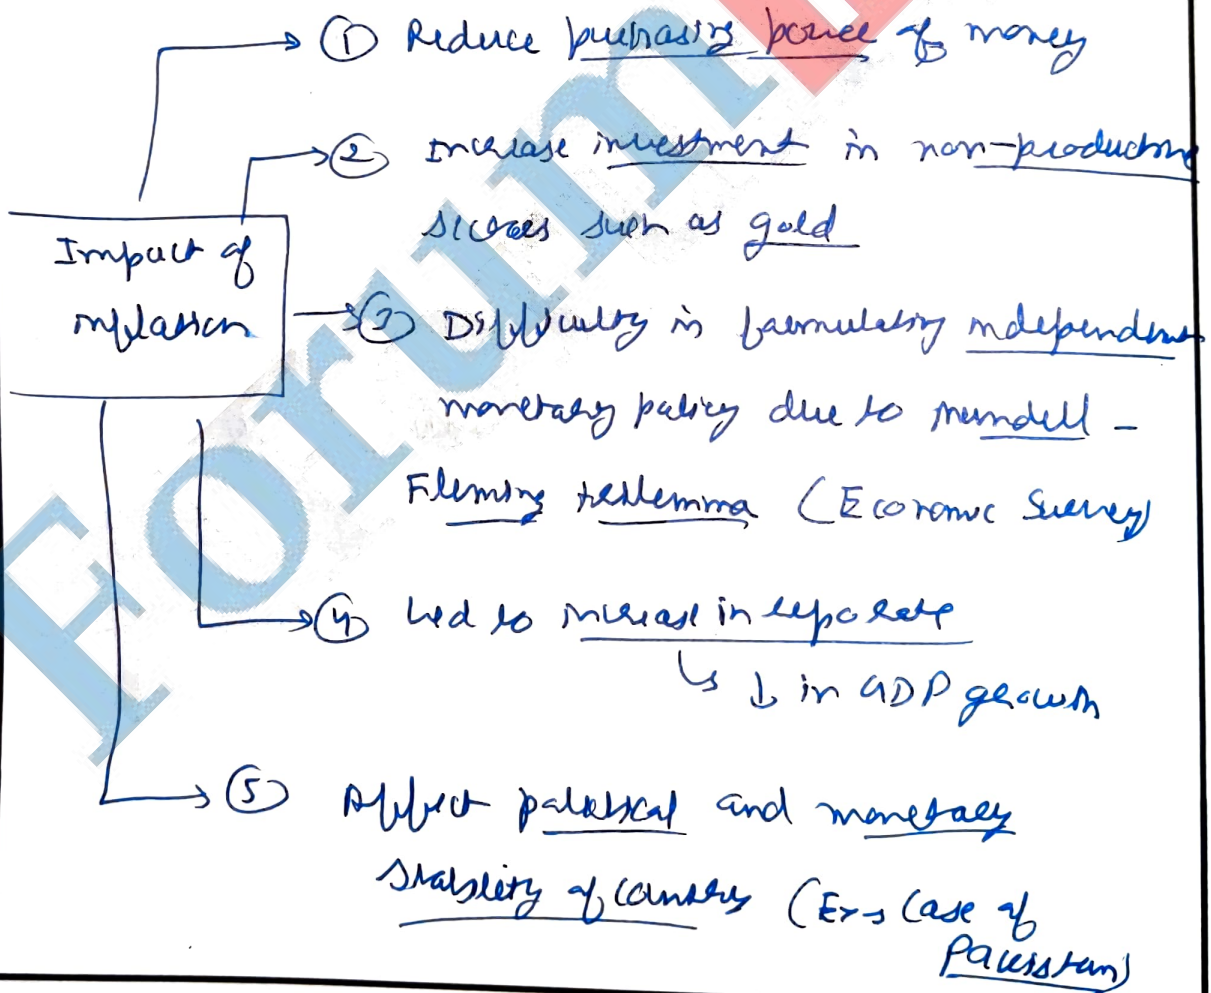 ① Reduce purchasing power of money
② Increase investment in non-productive
sources such as gold
Impact of
inflation
③ Difficulty in formulating independent
monetary policy due to mundell -
Fleming trilemma (Economic Survey)
④ Led to increase in repo rate
↳ ↓ in GDP growth
⑤ Affect political and monetary
stability of country (Ex → Case of
Pakistan)
Forum